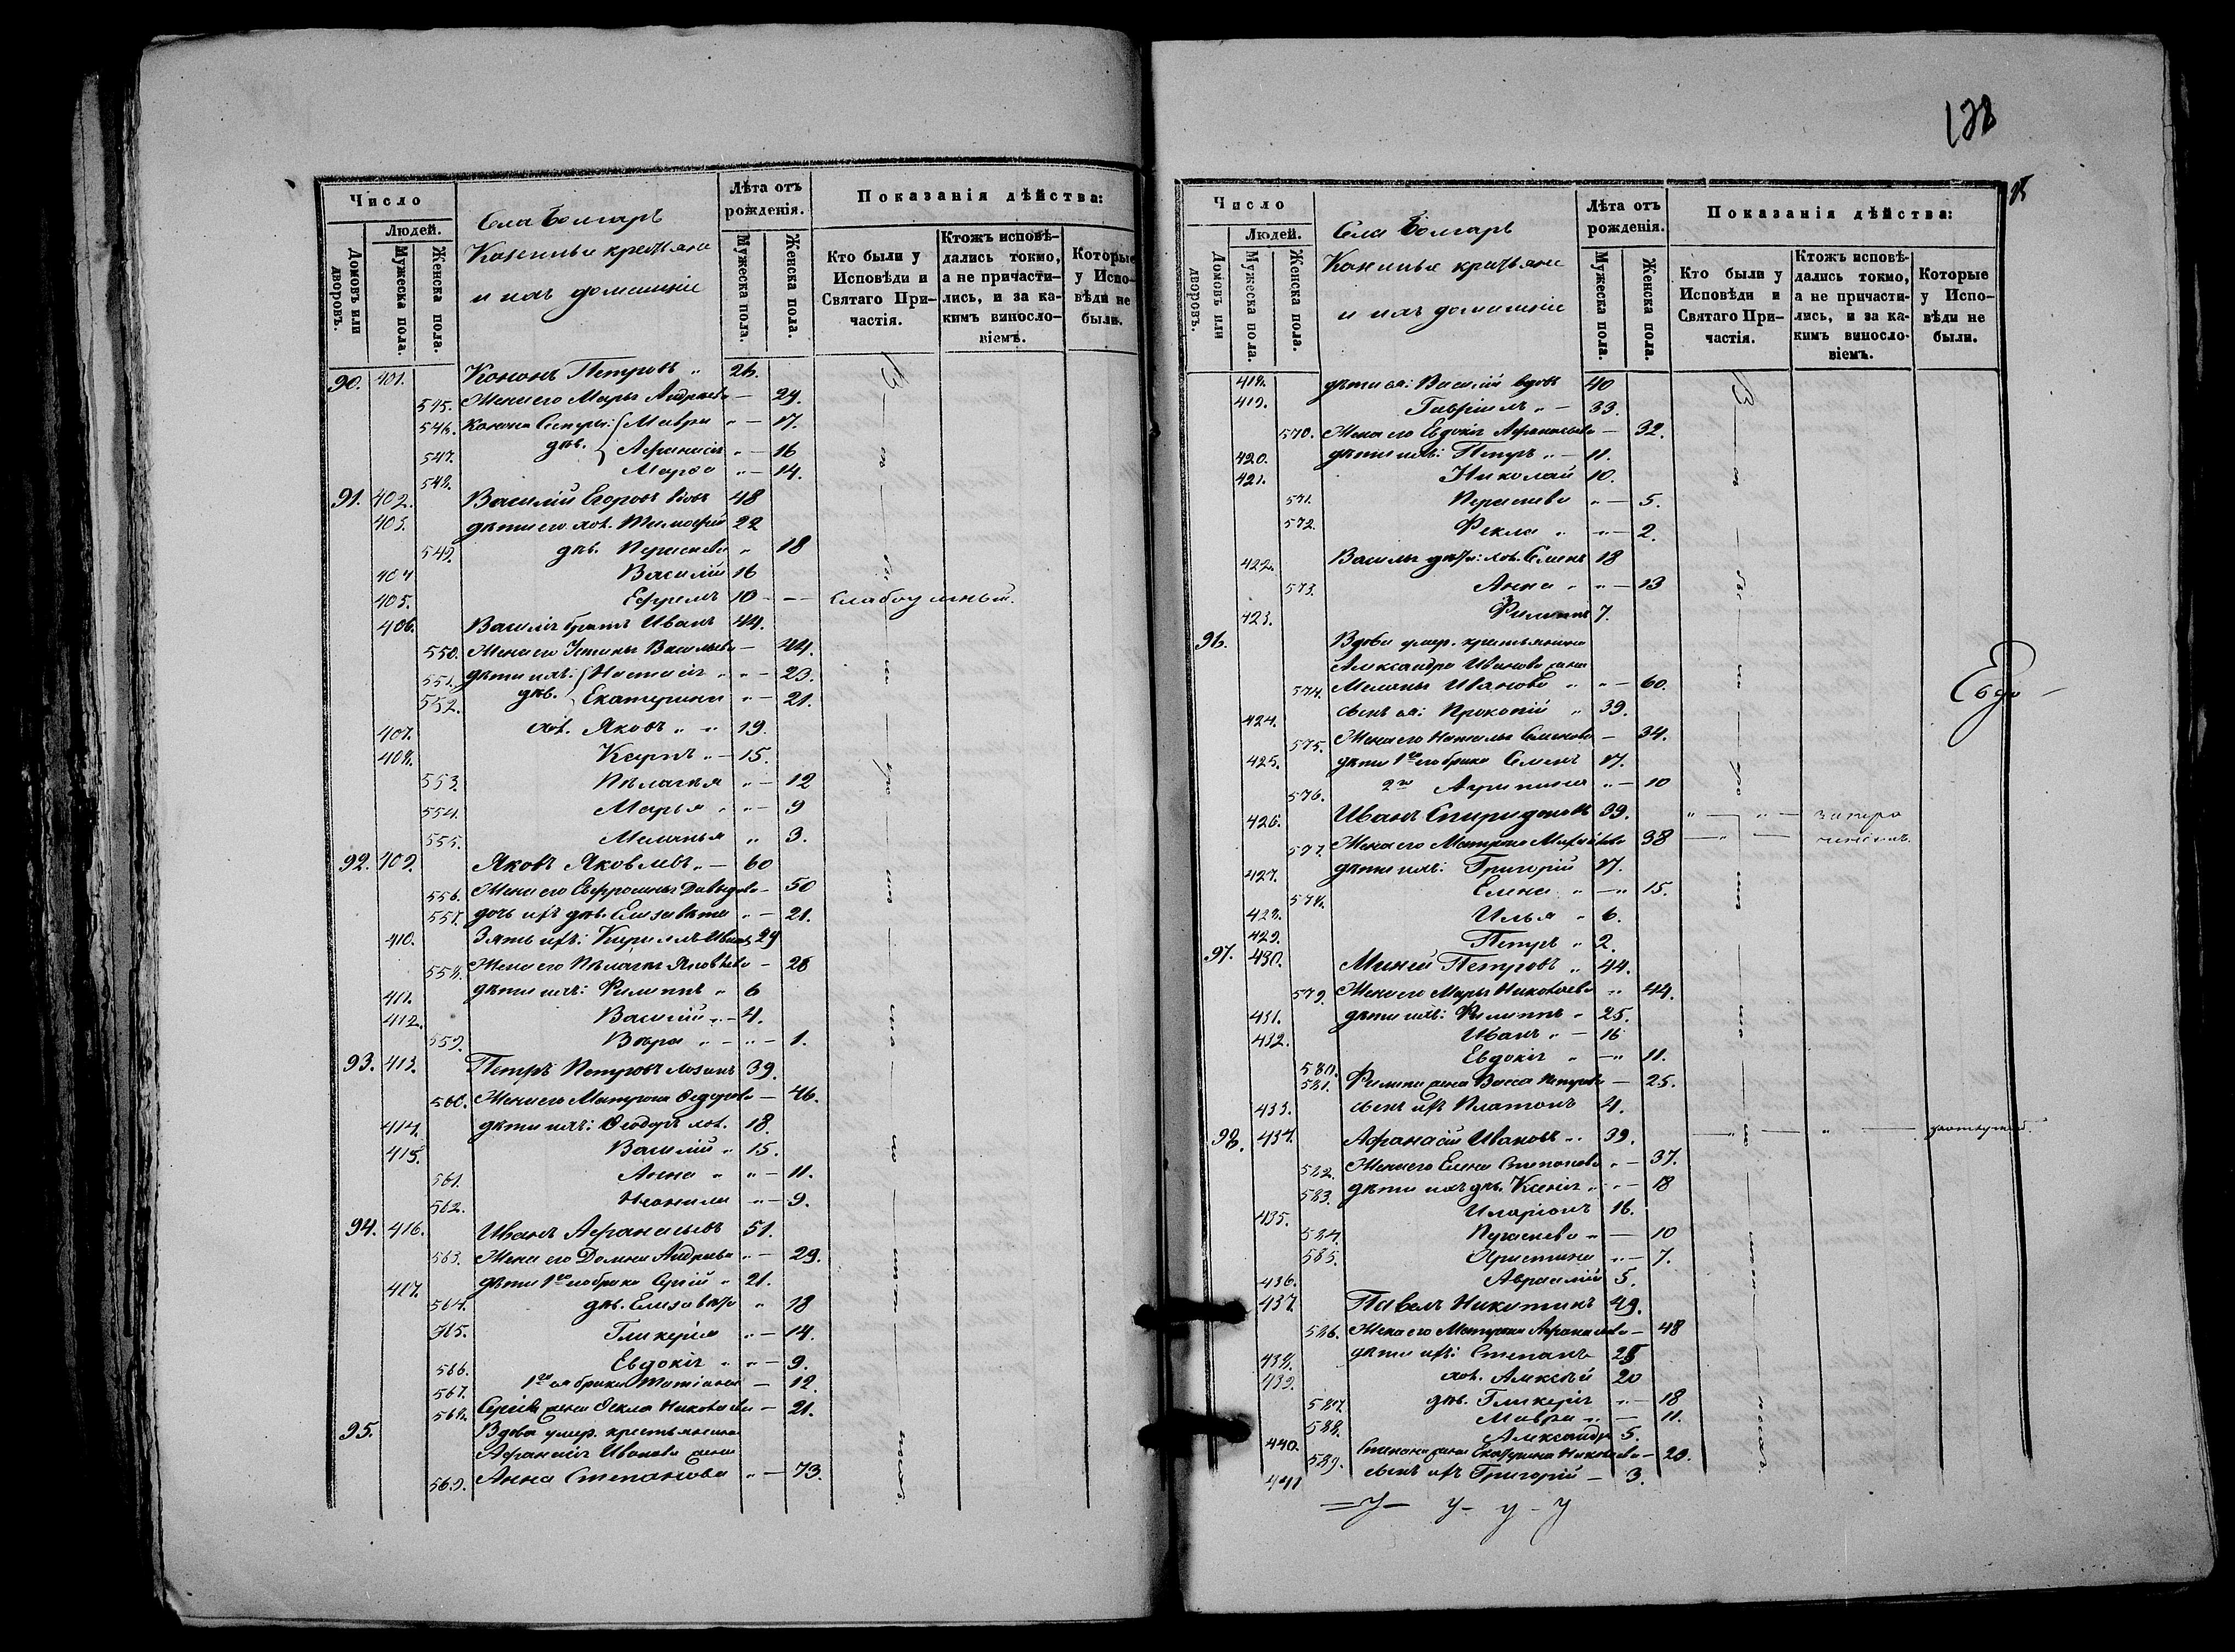 Число
Людей.
Домовъ или дворовъ.
Мужеска пола.
Женска пола.
Села Болгаръ
Казенные крестьяне
и ихъ домашніе
Лѣта отъ рожденія.
Мужеска пола.
Женска пола.
Показанія дѣйства:
Кто были у Исповѣди и Святаго Причастія.
Ктожъ исповѣдались токмо, а не причастились, и за какимъ винословіемъ.
Которые у Исповѣди не были.
90. 401. Кононъ Петровъ 26.
545. Жена его Марья Андреева — 24.
546. Конона сестры: Мавра — 17.
547. дѣв. Афанасія — 16
548. Марѳа — 14.
91. 402. Василій Егоровъ вдов 48
403. дѣти его хол. Тимофей 22
549. дѣв. Параскева 18
404 Василій 16
405. Ефремъ 10 — Слабоумный.
406. Василія братъ Иванъ 44.
550. Жена его Устинья Васильева — 44.
551. дѣти ихъ: Настасія — 23.
552. дѣв. Екатерина — 21.
407. хол. Яковъ — 19.
408. Карпъ — 15.
553. Пелагея — 12
554. Марья — 9
555. Меланья 3.
92. 409. Яковъ Яковлевъ — 60
556. Жена его Евфросинья Давыдова — 50
557. дочь ихъ дѣв. Елизавета — 21.
410. Зять ихъ: Кириллъ Иванов 29
558. Жена его Пелагея Яковлева — 28
411. дѣти ихъ: Филиппъ 6
412. Василій — 4.
559. Вѣра — 1.
93. 413. Петръ Петровъ 39.
560. Жена его Матрона Федорова — 46.
414. дѣти ихъ: Ѳеодоръ хол. 18.
415. Василій 15.
561. Анна — 11.
562. Неонила — 9.
94. 416. Иванъ Афанасьевъ 51.
563. Жена его Домна Андреева — 29.
417. дѣти 1го его брака Сергій 21.
564. дѣв. Елизавета 18
565. Гликерія — 14.
566. Евдокія — 9.
567. 1го ея брака Татіана — 12.
568. Сергія жена Ѳекла Николаева — 21.
95. Вдова умер. крестьянина
Афанасія Иванова жена
569. Анна Степанова — 73.
128
Число
Людей.
Домовъ или дворовъ.
Мужеска пола.
Женска пола.
Села Болгаръ
Казенные крестьяне
и ихъ домашніе
Лѣта отъ рожденія.
Мужеска пола.
Женска пола.
Показанія дѣйства:
Кто были у Исповѣди и Святаго Причастія.
Ктожъ исповѣдались токмо, а не причастились, и за какимъ винословіемъ.
Которые у Исповѣди не были.
418. дѣти ея: Василій вдов 40
419. Гавріилъ — 33.
570. Жена его Евдокія Афанасьева — 32.
420. дѣти ихъ: Петръ — 11.
421. Николай 10.
571. Параскева — 5.
572. Фекла — 2.
422. Василья дѣти: хол. Семенъ 18
573. Анна — 13
423. Филиппъ 7.
96. Вдова умер. крестьянина
Александра Иванова жена
574. Меланья Иванова — 60.
424. сынъ ея: Прокопій 39.
575. Жена его Наталья Семенова — 34.
425. дѣти 1го его брака Семенъ 17.
576. 2го Агрипина — 10
426. Иванъ Спиридоновъ 39.
577. Жена его Матрона Михайлова 38
427. дѣти ихъ: Григорій 17.
578. Елена — 15.
428. Илья 6.
429. Петръ 2.
97. 430. Миней Петровъ 44.
579. Жена его Марья Николаева 44.
431. дѣти ихъ: Филиппъ 25.
432. Иванъ — 16
580. Евдокія — 11.
581. Филипа жена Васса Петрова — 25.
433. сынъ ихъ Платонъ 4.
98. 434. Афанасій Ивановъ 39.
582. Жена его Елена Степанова — 37.
583. дѣти ихъ дѣв. Ксенія — 18
435. Иларіонъ 16.
584. Параскева — 10
585. Христина — 7.
436. Авраамій 5.
437. Павелъ Никитинъ 49.
586. Жена его Матрона Афанасьева — 48
438. дѣти ихъ: Степанъ 25
439. хол. Алексѣй 20
587. дѣв. Гликерія — 18
588. Мавра — 11.
440. Александръ 5.
589. Степана жена Екатерина Николаева — 20.
441 сынъ ихъ Григорій — 3.
Евдо —